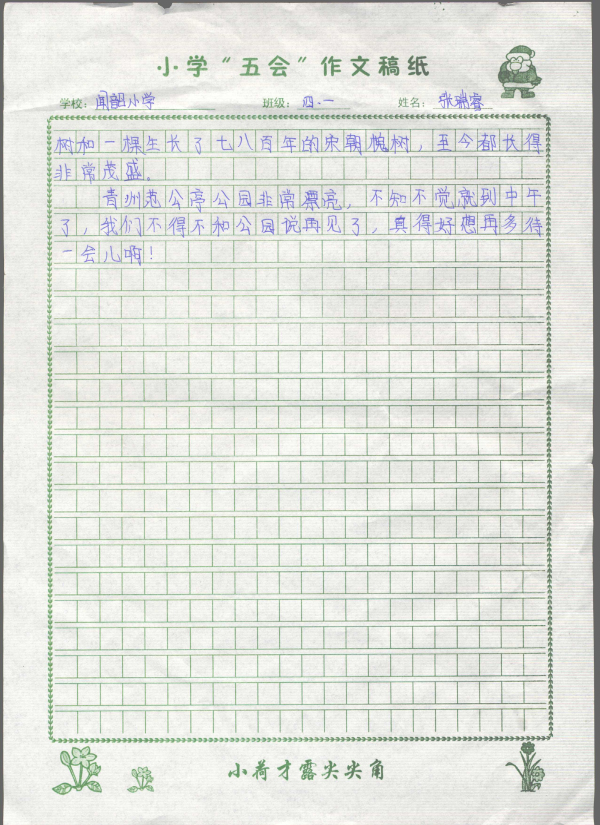 小学“五会”作文稿纸
学校：闻韶小学 班级：四·一 姓名：张瑞睿
树和一棵生长了七八百年的宋朝槐树，至今都长得
非常茂盛。
青州范公亭公园非常漂亮，不知不觉就到中午
了，我们不得不和公园说再见了，真得好想再多待
一会儿啊！
小荷才露尖尖角